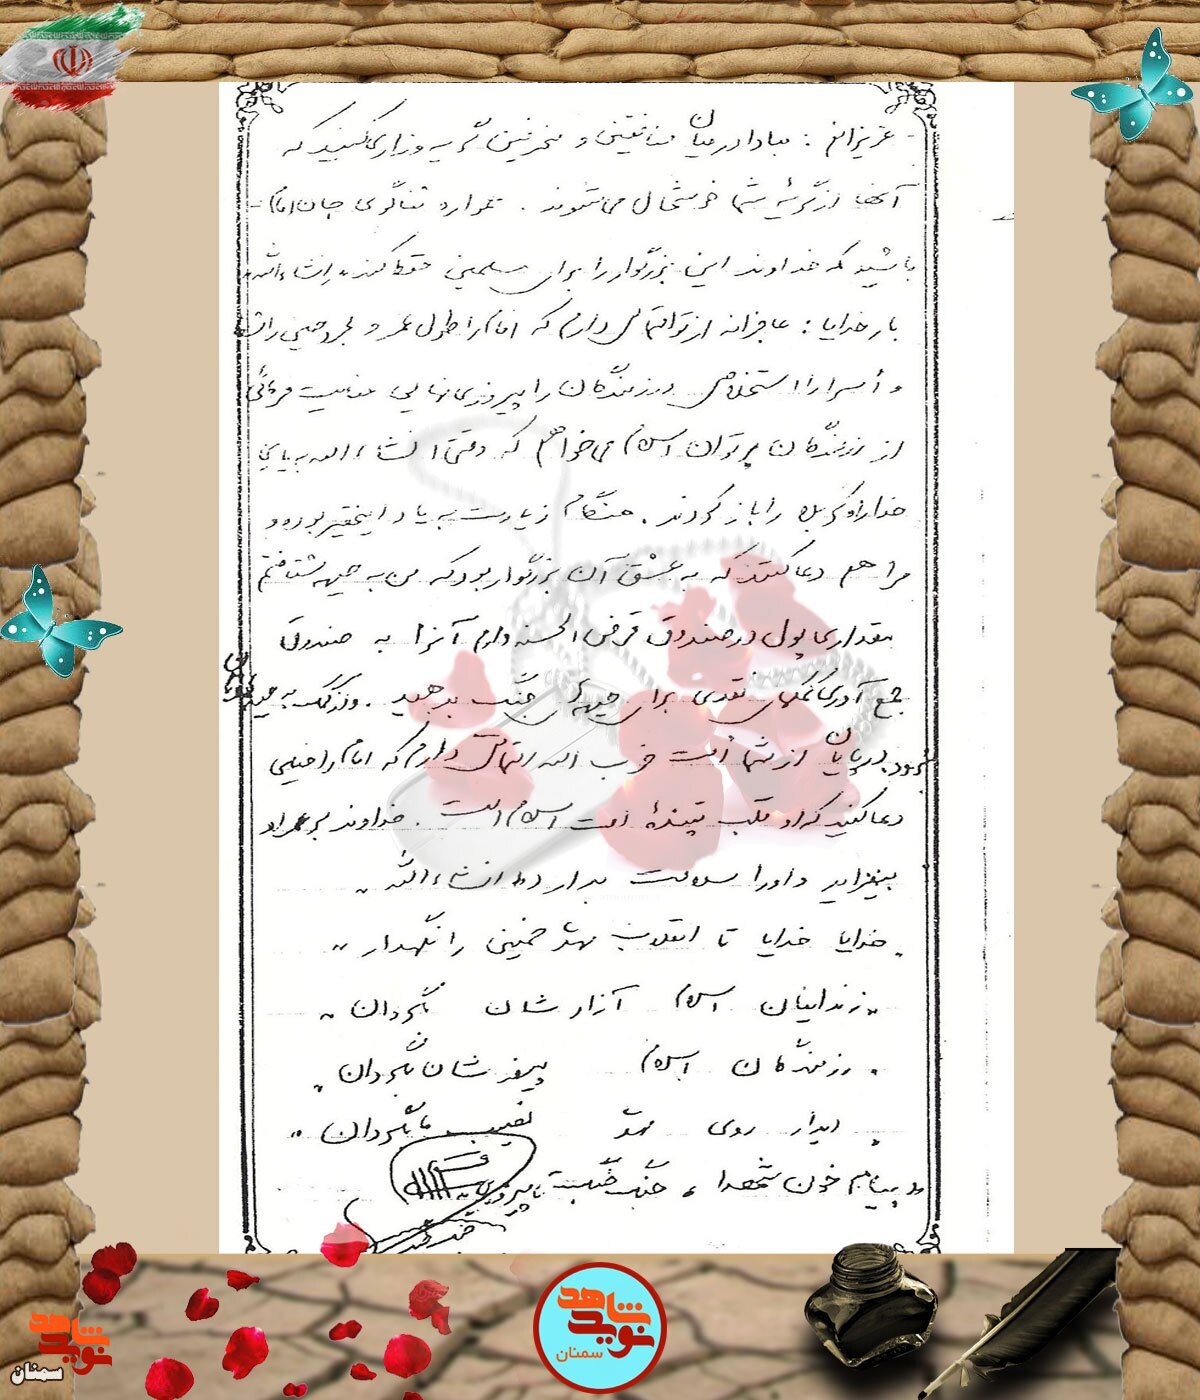 - عزیزانم : مبادا در میان منافقین و منحرفین گریه وزاری کنید که
آنها از گریه شما خوشحال می‌شوند . همواره ثناگوی جان امام -
باشید که خداوند این بزرگوار را برای مسلمین حفظ کند، انشاءالله.
بار خدایا : عاجزانه از تو التماس دارم که امام را طول عمر و مجروحین را شفا
و اسرا را استخلاص و رزمندگان را پیروزی نهایی عنایت فرمائی
از رزمندگان پرتوان اسلام می‌خواهم که وقتی انشاءالله بیاری
خدا راه کربلا را باز کردند . هنگام زیارت به یاد اینحقیر بوده و
مرا هم دعا کنند که به عشق آن بزرگوار بود که من به جبهه شتافتم
مقداری پول در صندوق قرض الحسنه دارم آنرا به صندوق
جمع آوری کمکهای نقدی برای جبهه‌های جنگ بدهید . و از کمک به جبهه
در پایان از شما امت حزب الله التماس دارم که امام را خیلی
دعا کنید که او قلب تپنده امت اسلام است . خداوند بر عمر او
بیفزاید و او را سلامت بدارد انشاءالله .
. خدایا خدایا تا انقلاب مهدی خمینی را نگهدار "
" زندانیان اسلام آزادشان بگردان "
" رزمندگان اسلام پیروزشان بگردان "
" دیدار روی مهدی نصیب ما بگردان "
" پیام خون شهدا ، جنگ جنگ تا پیروزیست
نوید شاهد
سمنان
نوید شاهد
سمنان